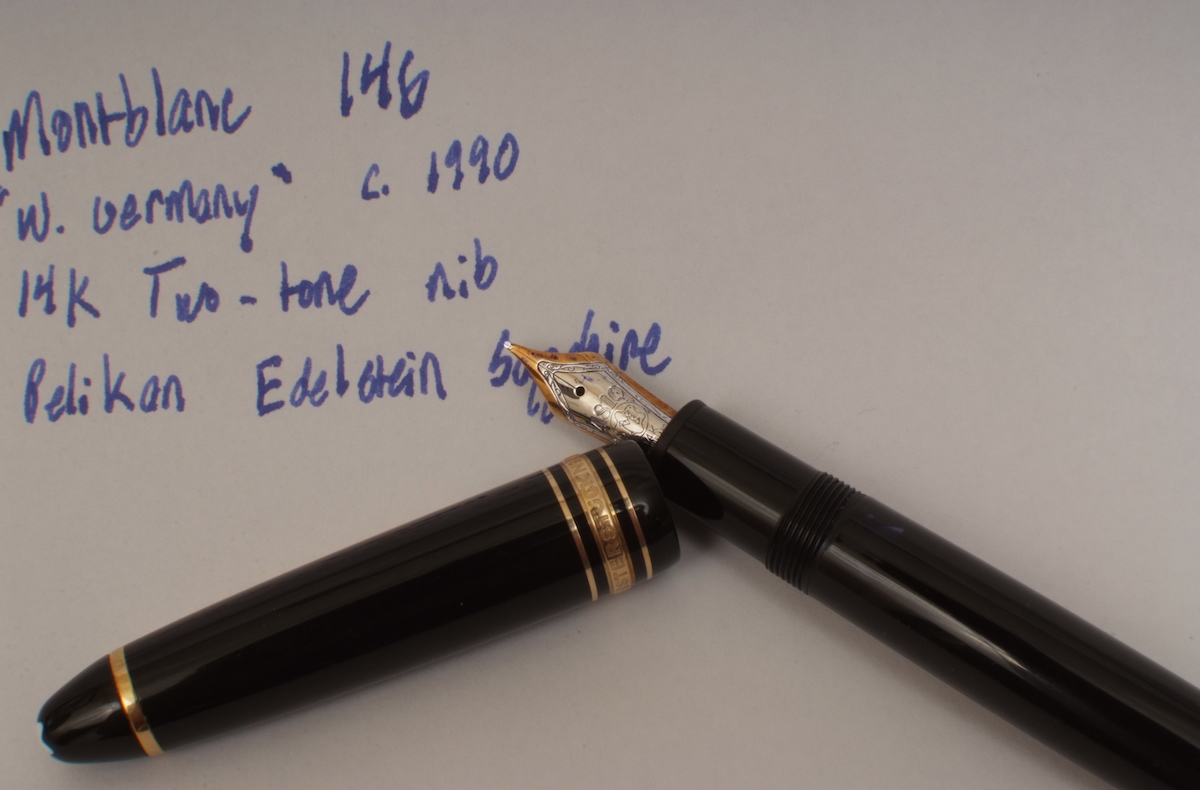 Montblanc 146
"W. Germany" c. 1990
14K Two-tone nib
Pelikan Edelstein